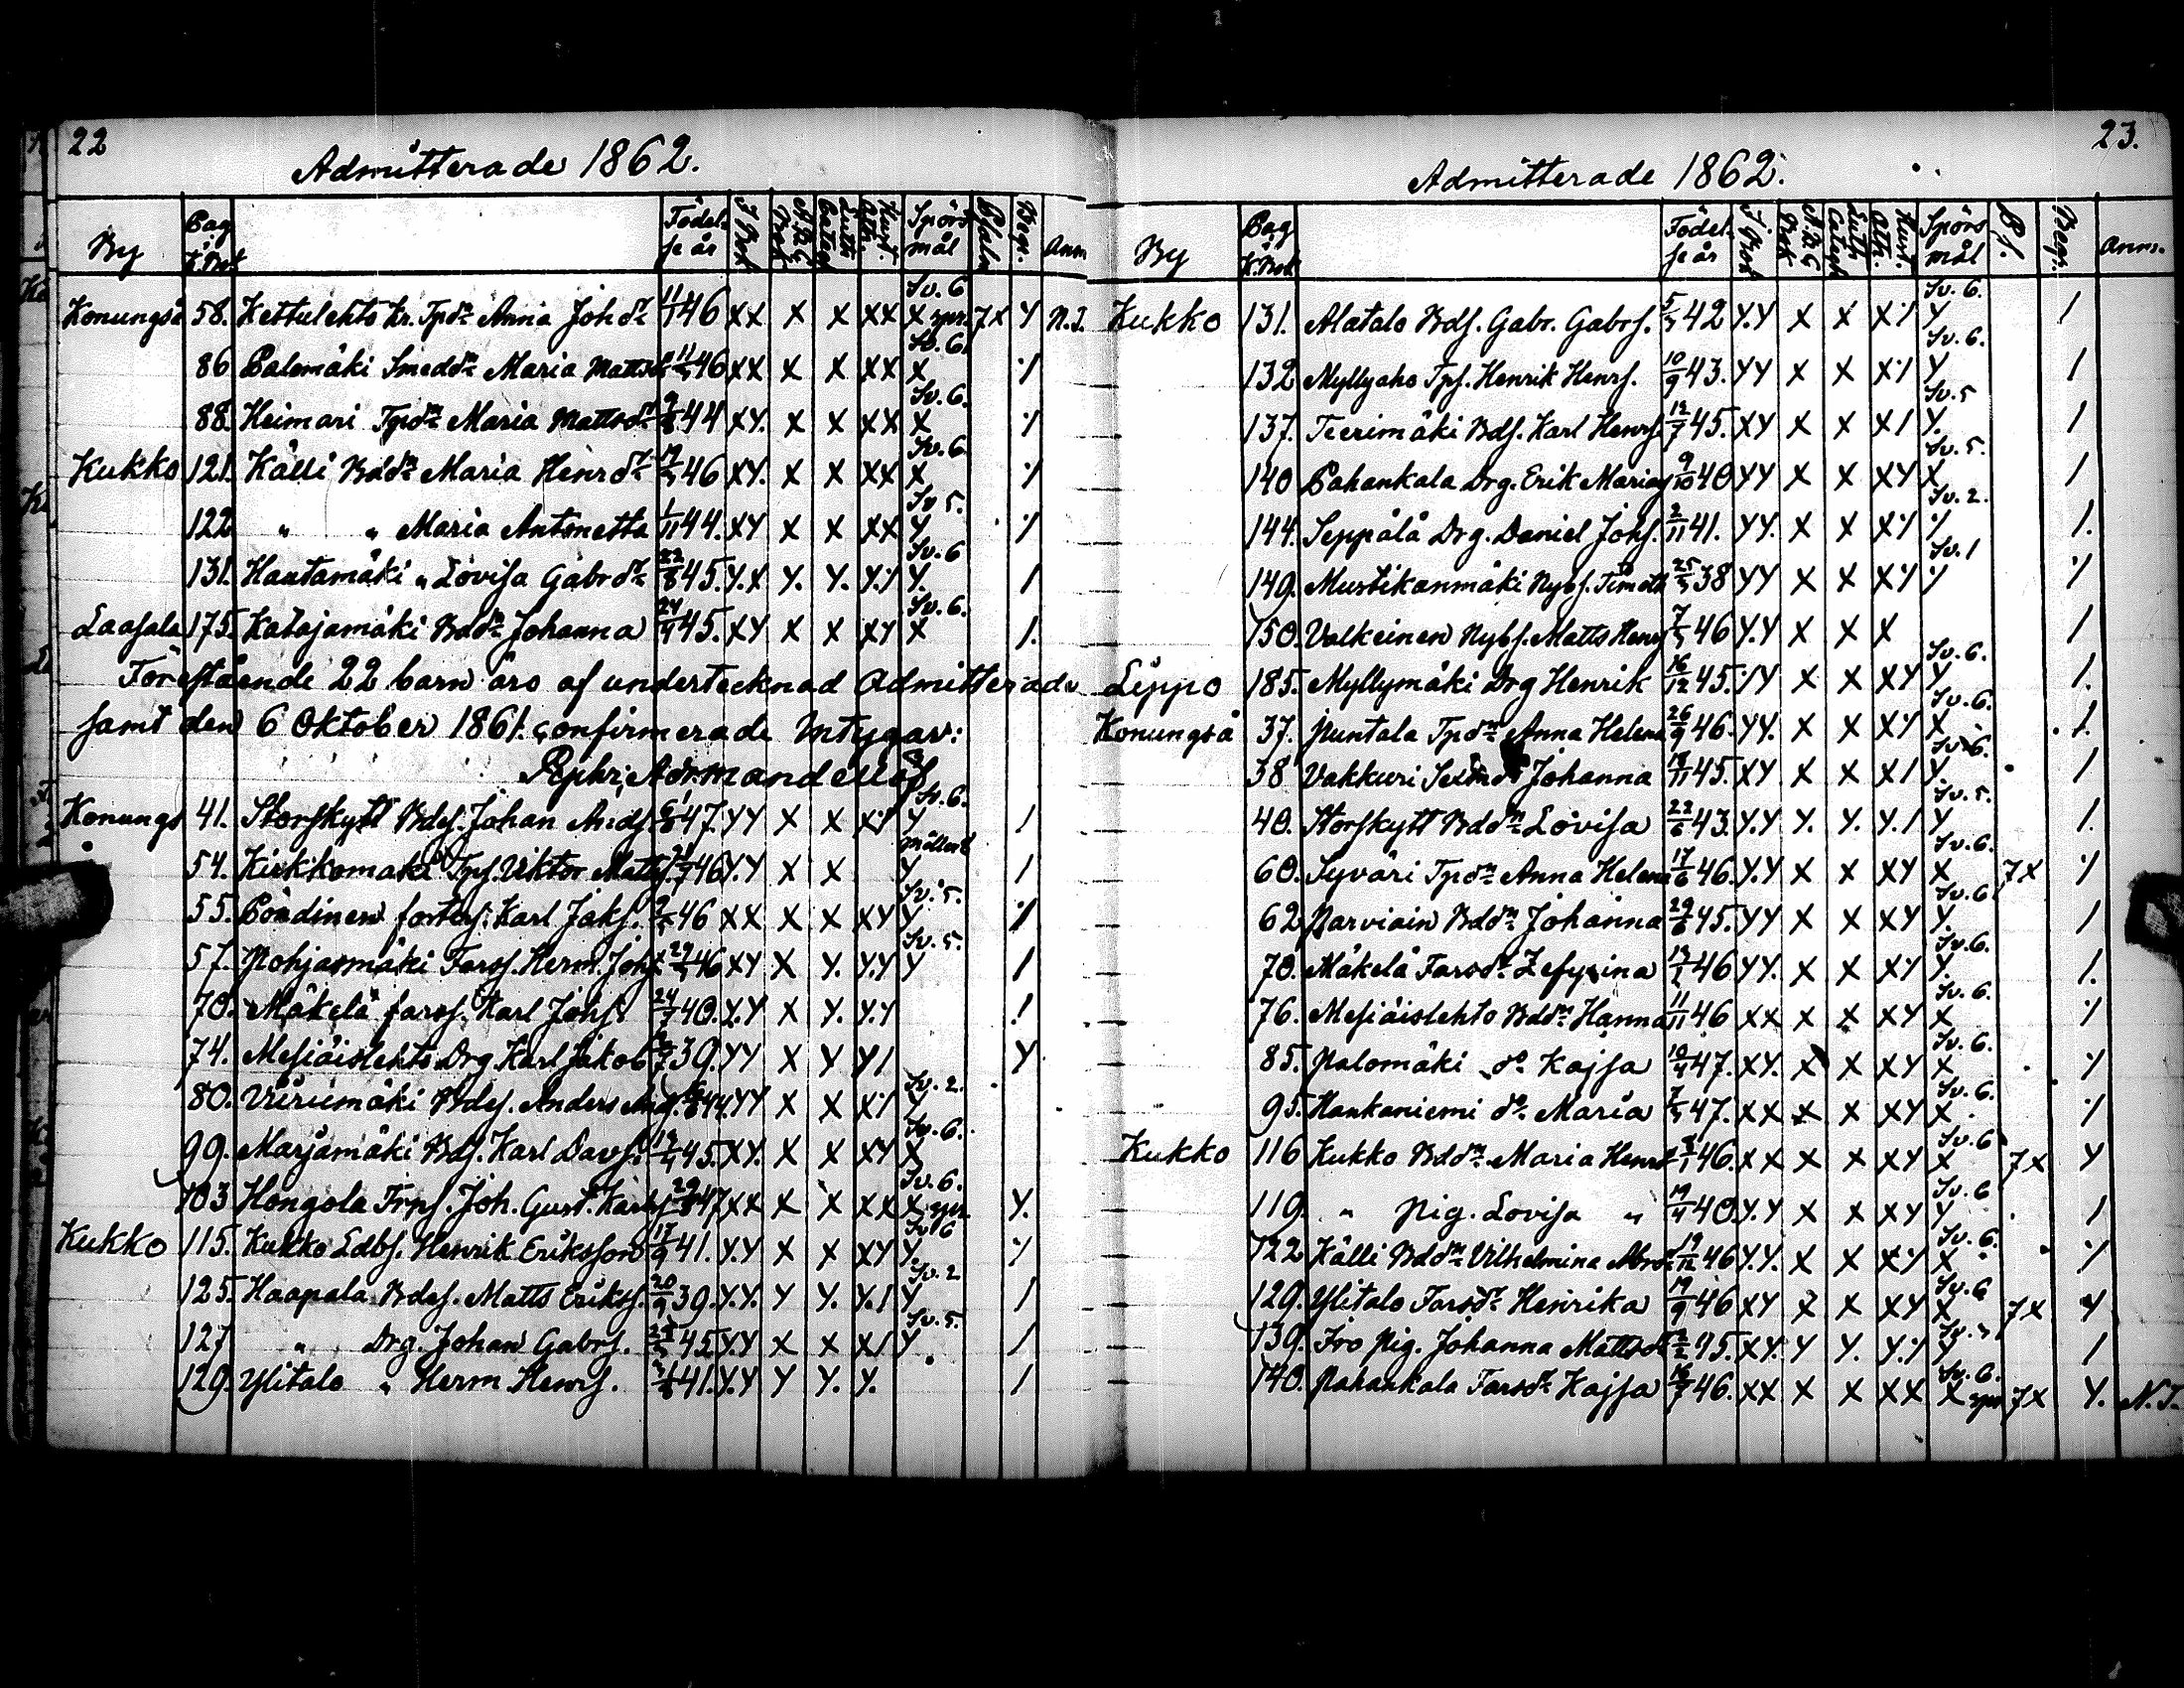 22
Admitterade 1862.
By Pag K.Bok Födelse år I Bok A.B.C Bok Luth Categ Hust. Att. Spörsmål Psalm Begr. Anm
Konungså 58. Kettulehto Kr. Tpdr Anna Johdr 11/1 46 XX X X XX Sv. 6 X 7X Y N.T.
86 Palomäki Smeddr Maria Mattsdr 46 XX X X XX Sv. 6. X ٪
88. Heimari Tpdr Maria Mattsdr 9/8 44 XY. X X XX Sv. 6. X ٪
Kukko 121. Källi Bddr Maria Henrdr 46 XY. X X XX Sv. 6 X ٪
122 " " Maria Antonetta 1/11 44. XY X X XX Sv 5. Y ٪
131. Hautamäki " Lovisa Gabrdr 22/8 45. Y.X Y. Y. Y.٪ Sv. 6 Y. /
Laasala 175. Katajamäki Bddr Johanna 24/9 45. XY X X XY Sv. 6. X /.
Förestående 22 barn äro af undertecknad Admitterade
samt den 6 Oktober 1861. confirmerade Intygar:
Konungså 41. Storskytt Bdes. Johan Ands 47. YY X X X٪ Sv. 6. Y /
54. Kirkkomäki Tps. Viktor Matts. 46 Y.Y X X Y /
55. Karl Jaks. 46 XX X X XY Sv. 5. Y ٪
57. Pohjasmäki Farss. Herm. Johs 46 XY X Y. Y.Y Sv. 5. Y /
70. Mäkelä farss. Karl Johs. 24/7 40. Y.Y X Y. Y.Y /
74. Mesiäislehto Drg Karl Jakob 39. YY X Y Y/ Y
80. Viirumäki Bdes. Anders 44. YY X X X٪ Sv. 2. Y
99. Marjamäki Bds. Karl Davs. 45. XY. X X XY Sv. 6. X
103 Hongola Trps. Joh. Gust. Karls 47 XX X X XX Sv. 6. X Y.
Kukko 115. Kukko Ldbs. Henrik Eriksson 17/9 41. Y.Y X X XY Sv 6 Y. ٪
125. Haapala Bdes. Matts Eriks. 20/9 39. Y.Y. Y Y. Y./ Sv. 2 Y /
127 " Drg. Johan Gabrs. 45 Y.Y X X X/ Sv. 5. Y /
129. Ylitalo " Herm Henrs. 41. Y.Y Y Y. Y. /
23.
Admitterade 1862.
By Pag K.Bok Födelse år I Bok A.B.C Bok Luth Categ Hust. Att. Spörsmål Ps. Begr. Anm.
Kukko 131. Alatalo Bds. Gabr. Gabrs. 5/3 42 Y.Y X X X٪ Sv. 6. Y /
132 Myllyaho Tps. Henrik Henrs. 10/9 43. YY X X X٪ Sv. 6. Y /
137. Teerimäki Bds. Karl Henrs. 12/7 45. XY X X X/ Sv. 5 Y. /
140 Pahankala Drg. Erik Marias 9/10 40 YY X X XY Sv. 5. X /
144. Seppälä Drg. Daniel Johs. 2/11 41. YY. X X X٪ Sv. 2. ٪ /.
149. Mustikanmäki Nybs. Timoth 25/3 38 YY X X X٪ Sv. 1 ٪ ٪
150. Valkeinen Nybs. Matts Henrs 7/3 46 Y.Y X X X /
Leppo 185. Myllymäki Drg Henrik 16/12 45. ٪Y X X XY Sv. 6. Y /.
Konungså 37. Puntala Tpdr Anna Helena 26/9 46. YY. X X X٪ Sv. 6. X /.
38 Vakkuri Johanna 45. XY X X X/ Sv. 6. Y. /
40. Storskytt Bddr Lovisa 22/6 43. Y.Y Y. Y. Y./ Sv. 5. Y /.
60. Syväri Tpdr Anna Helena 17/6 46. Y.Y X X XY Sv. 6. X 7X ٪
62 Parviain Bddr Johanna 29/6 45. YY X X XY Sv. 6 Y. /
70. Mäkelä Farsdr Zefyrina 46 YY. X X X٪ Sv. 6. Y. /.
76. Mesiäislehto Bddr Hanna 11/11 46 XX X X XY Sv. 6. X ٪
85. Palomäki do Kajsa 10/4 47. XY. X X XY Sv. 6. X ٪
95. Hankaniemi do Maria 7/3 47. XX X X XY Sv. 6. X ٪
Kukko 116 Kukko Bddr Maria Henrdr 46. XX X X XY Sv. 6 X 7X Y
119. " Pig. Lovisa " 19/4 40. Y.Y X X XY Sv. 6 Y /
122 Källi Bddr Vilhelmina Abrdr 19/12 46 Y.Y. X X X٪ Sv. 6. X ٪
129. Ylitalo Farsdr Henrika 19/9 46 XY X X XY Sv. 6 X 7X Y
139. Iro Pig. Johanna Mattsdr 45. XY. Y Y. Y.٪ Y /
140. Pahankala Farsdr Kajsa 16/7 46. XX X X XX Sv. 6. X 7X Y. N.T.